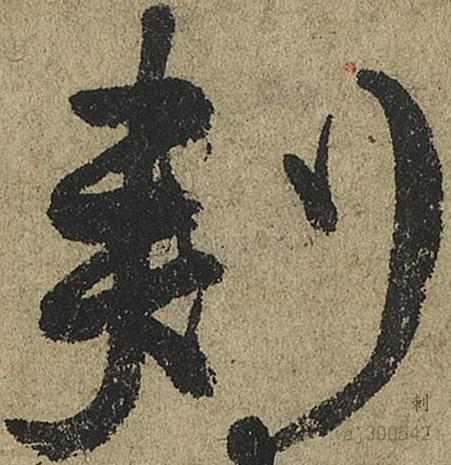 刺
刺
aj300542